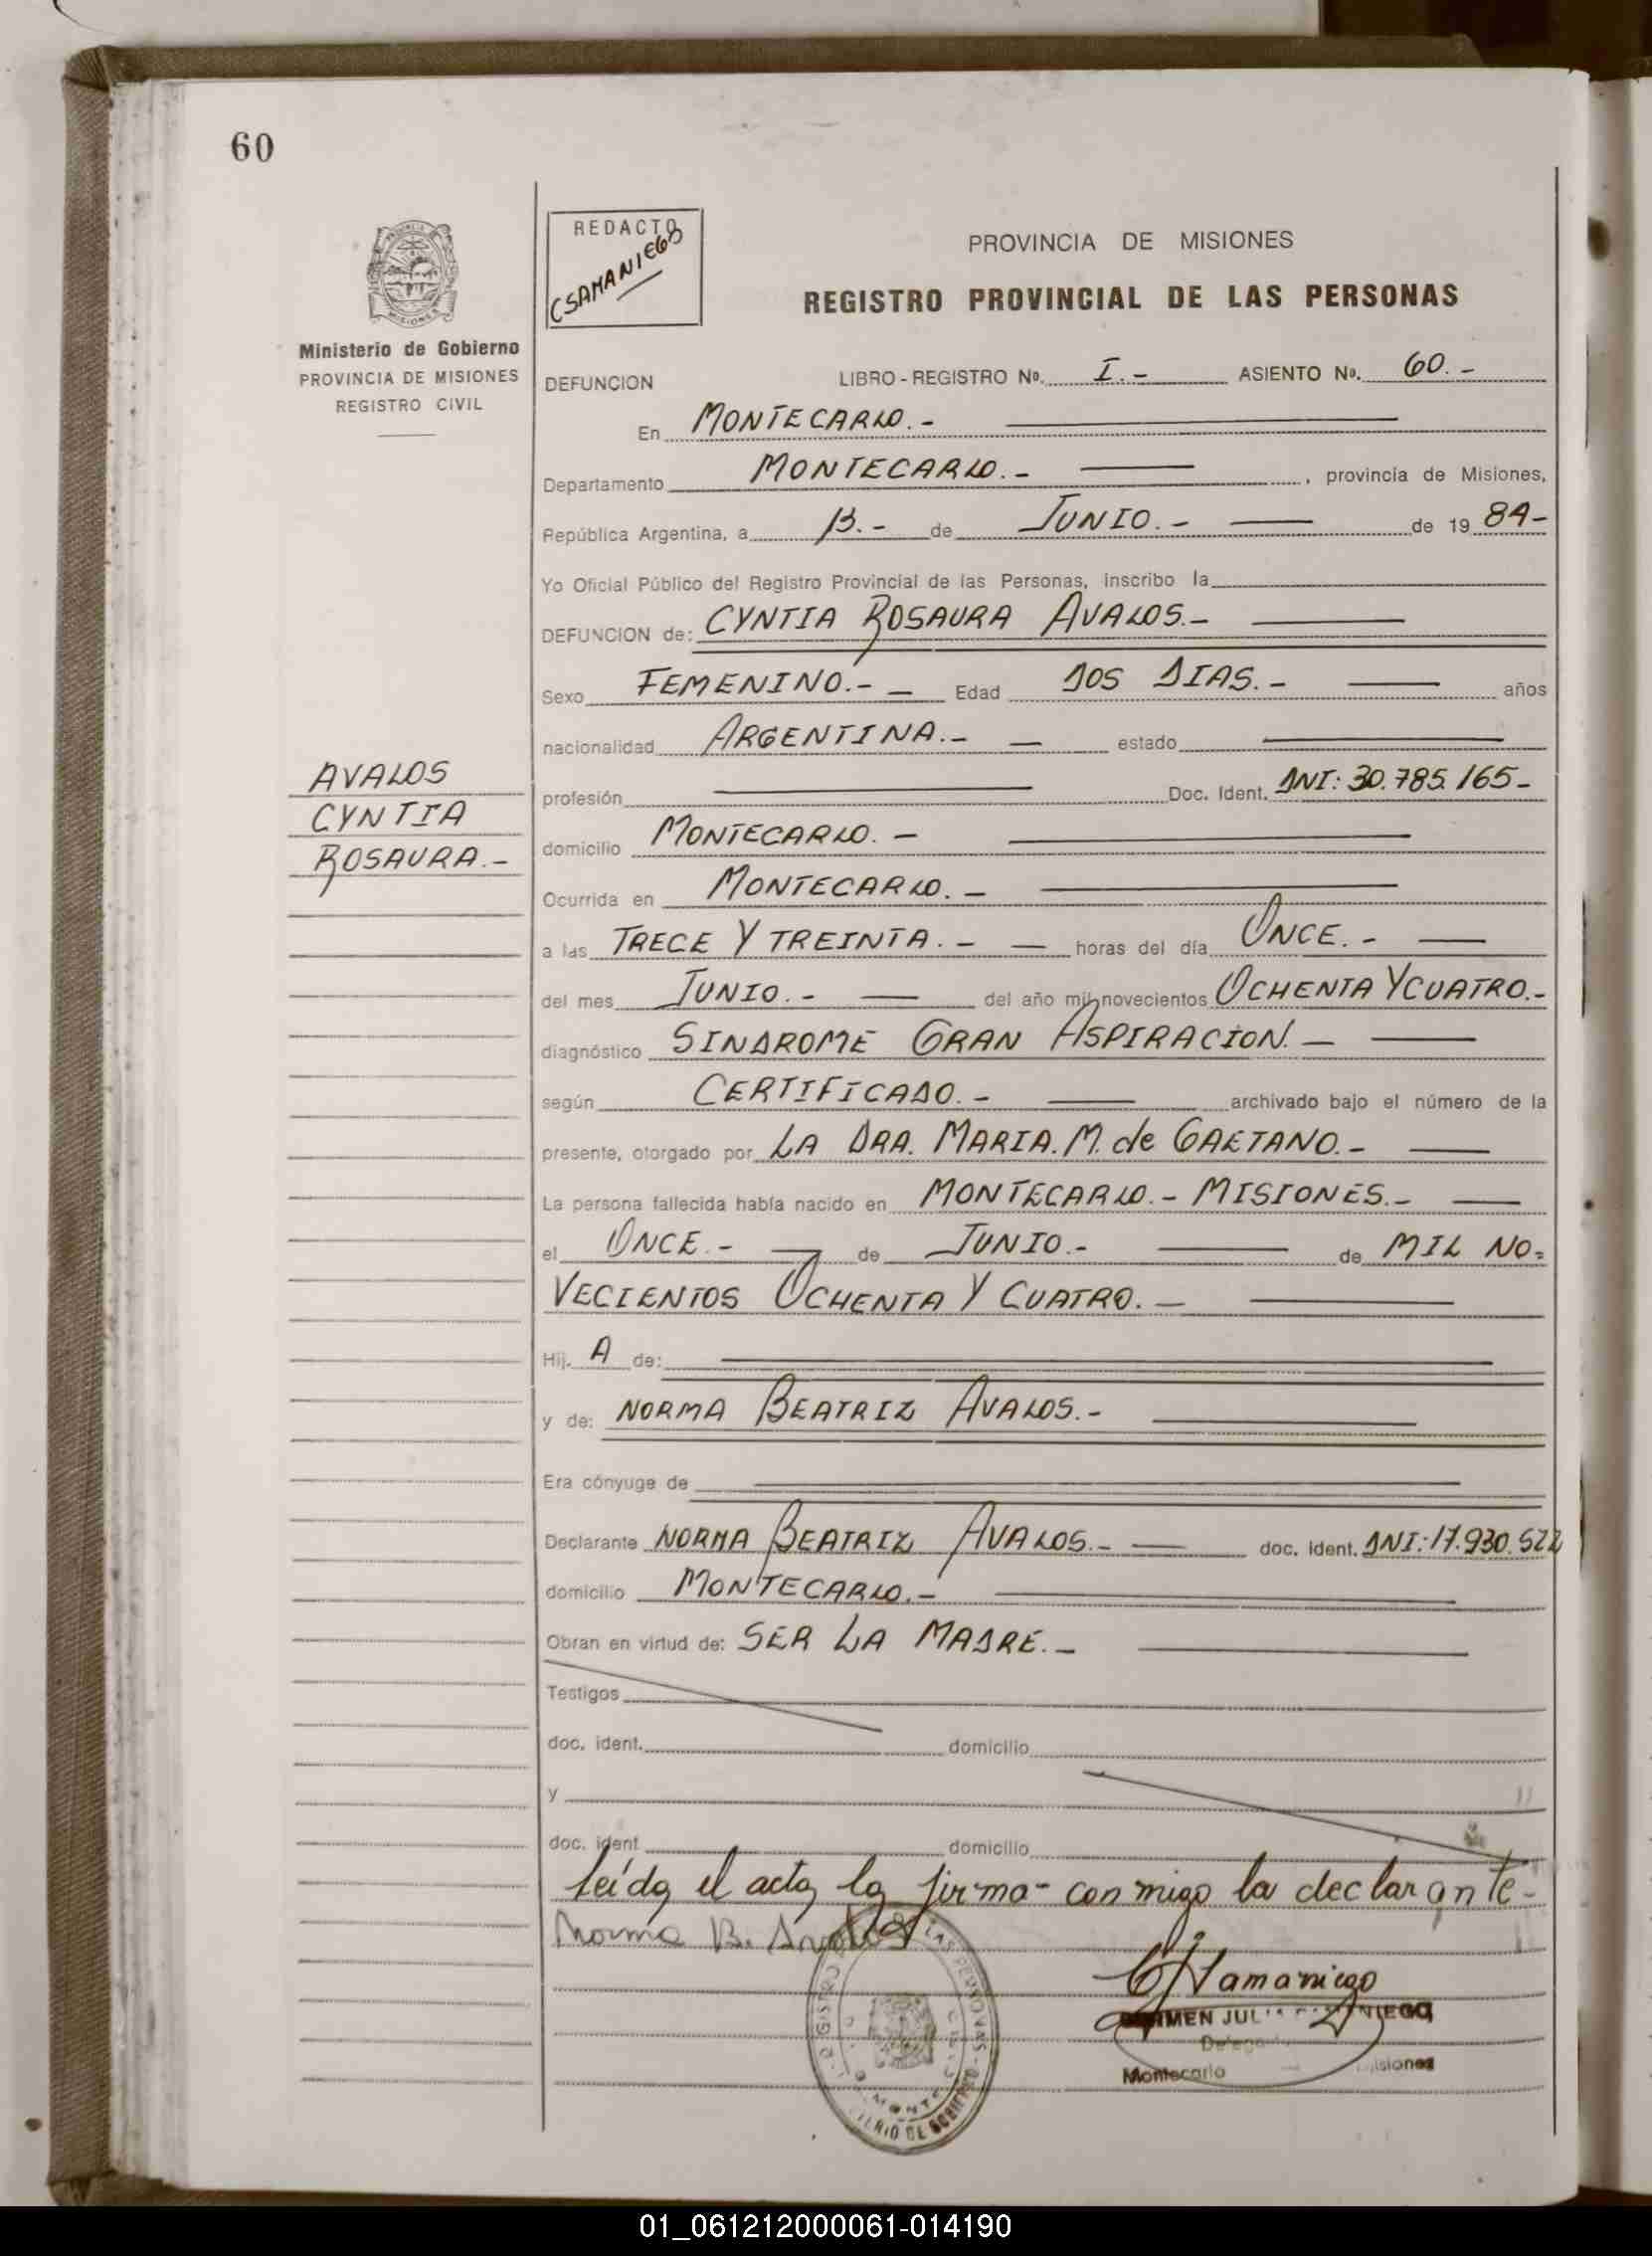 60
REDACTO
CSAMANIEGO
PROVINCIA DE MISIONES
REGISTRO PROVINCIAL DE LAS PERSONAS
Ministerio de Gobierno
PROVINCIA DE MISIONES
REGISTRO CIVIL
DEFUNCION LIBRO - REGISTRO Nº. I.- ASIENTO Nº. 60.-
En MONTECARLO.-
Departamento MONTECARLO.- , provincia de Misiones,
República Argentina, a 13.- de JUNIO.- de 19 84-
Yo Oficial Público del Registro Provincial de las Personas, inscribo la
DEFUNCION de: CYNTIA ROSAURA AVALOS.-
Sexo FEMENINO.- Edad DOS DIAS.- años
nacionalidad ARGENTINA.- estado
AVALOS
CYNTIA
ROSAURA.-
profesión Doc. Ident. DNI: 30.785.165-
domicilio MONTECARLO.-
Ocurrida en MONTECARLO.-
a las TRECE Y TREINTA.- horas del día ONCE.-
del mes JUNIO.- del año mil novecientos OCHENTA Y CUATRO.-
diagnóstico SINDROME GRAN ASPIRACION.-
según CERTIFICADO.- archivado bajo el número de la
presente, otorgado por LA DRA. MARIA. M. de GAETANO.-
La persona fallecida había nacido en MONTECARLO.- MISIONES.-
el ONCE.- de JUNIO.- de MIL NO=
VECIENTOS OCHENTA Y CUATRO.-
Hij. A de:
y de: NORMA BEATRIZ AVALOS.-
Era cónyuge de
Declarante NORMA BEATRIZ AVALOS.- doc. ident. DNI.: 17.930.522
domicilio MONTECARLO.-
Obran en virtud de: SER LA MADRE.-
Testigos
doc. ident. domicilio
y
doc. ident domicilio
leída el acta, la firma- conmigo la declarante-
Norma B. Avalos
CJSamaniego
CARMEN JULIA SAMANIEGO
Montecarlo Misiones
01_061212000061-014190